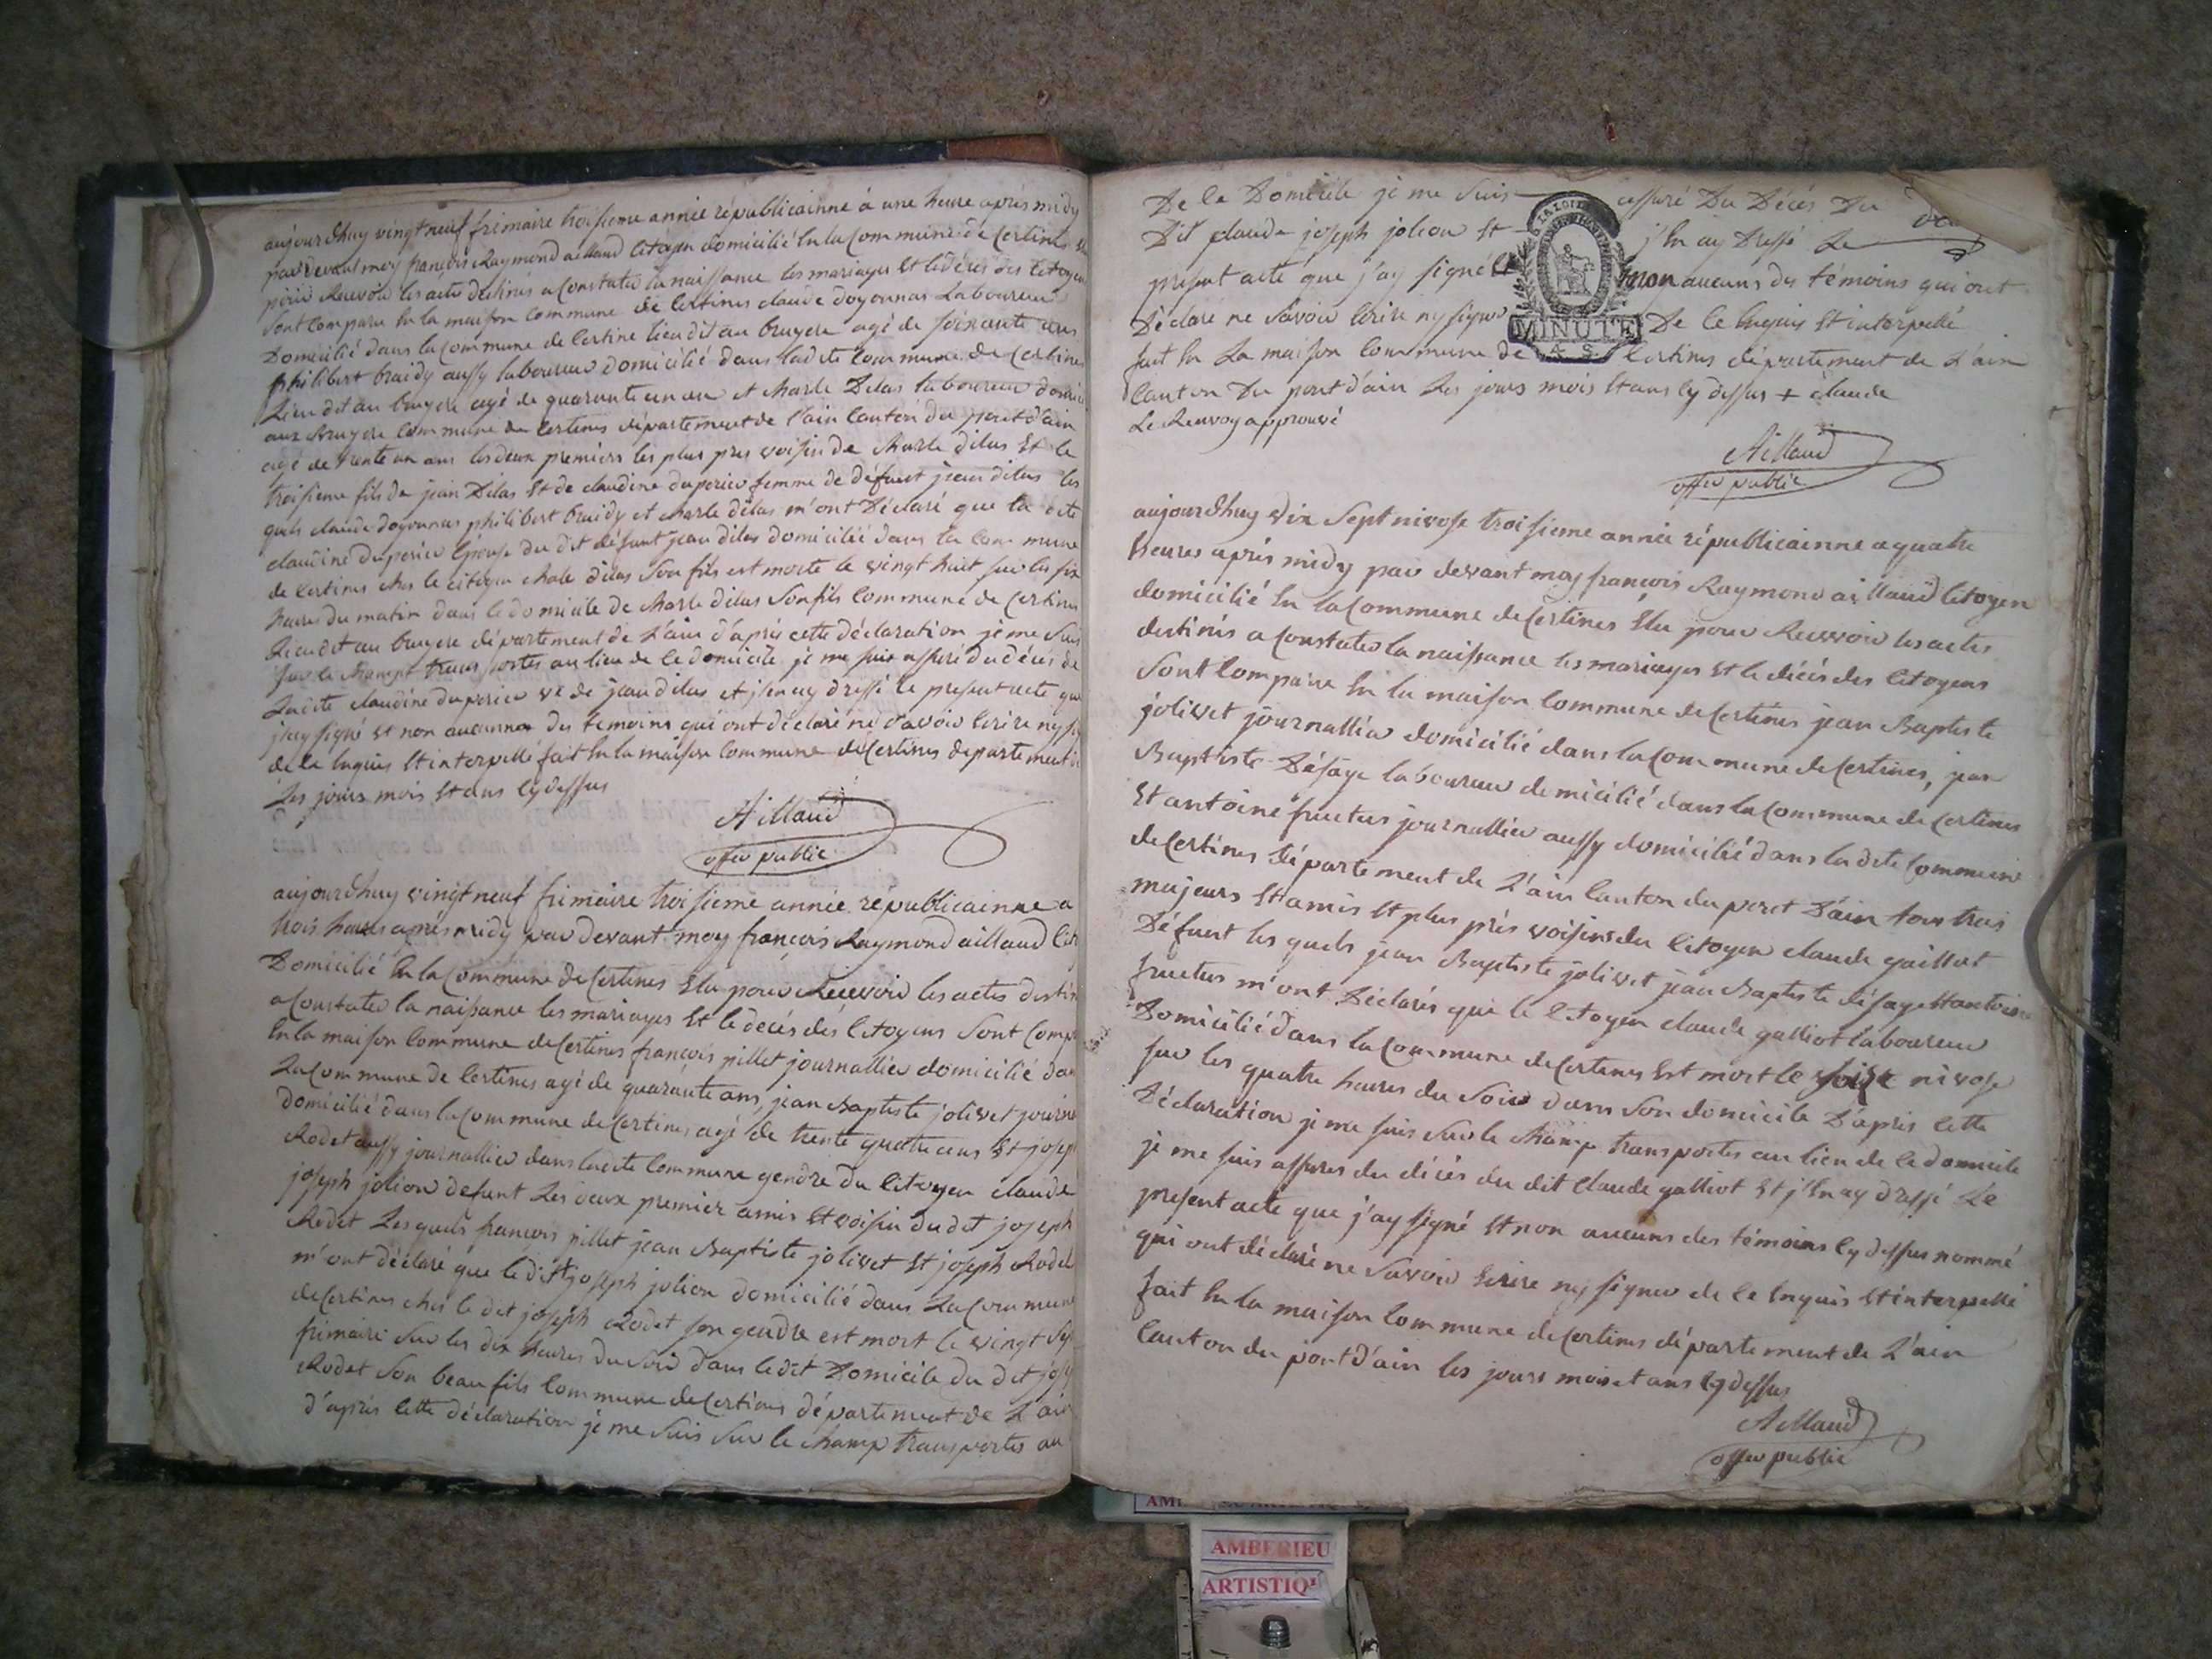 aujourdhuy vingt neuf frimaire troisieme année républicainne à une heure après midy
par devant moy françois Raymond aillaud citoyen domicilié En la Commune de Certines
pour Recevoir les actes destinés a Constater la naissance les mariages Et le décès des Citoyens
Sont Comparu En la maison Commune de Certines claude doyonnas Laboureur
Domicilié dans la Commune de Certine lieu dit au bruyere agé de soixante ans
philibert braidy aussy laboureur domicilié dans ladite Commune de Certines
Lieu dit au bruyere agé de quarante un an et charle Dilas laboureur domici
aux bruyere Commune de Certines département de l'ain Canton du pont d'ain
agé de trente un ans les deux premiers les plus pres voisin de charle dilas Et le
troisieme fils de jean Dilas Et de claudine duperier femme de défunt jean dilas les
quels claude doyonnas philibert braidy et charle dilas m'ont Déclaré que la dite
claudine duperier Epouse du dit défunt jean dilas domiciliée dans la Commune
de Certines ches le citoyen chale dilas Son fils est morte le vingt huit sur les six
heures du matin dans le domicile de charle dilas Son fils Commune de Certines
Lieu dit au bruyere département de L'ain d'après cette déclaration je me suis
sur le champt transportes au lieu de ce domicile je me suis assuré du décès de
Ladite claudine duperier ve de jean dilas et j'en ay dressé le present acte que
j'ay signé et non aucunnes des temoins qui ont déclaré ne savoir Ecrire ny sig
de ce Enquis Et interpellé fait En la maison Commune de Certines departement d
Les jours mois Et ans Cy dessus
Aillaud
offer public
aujourdhuy vingt neuf frimaire troisieme année républicainne a
trois heures après midy par devant moy françois Raymond aillaud Cit
Domicilié En la Commune de Certines Elu pour Recevoir les actes destin
a Constater la naissance les mariages Et le decès des Citoyens Sont Comp
En la maison Commune de Certines françois pillet journallier domicilié dan
La Commune de Certines agé de quarante ans, jean Baptiste jolivet journa
domicilié dans la Commune de Certines agé de trente quatre ans Et josep
Rodet aussy journallier dans ladite Commune gendre du Citoyen claude
joseph jolion defunt Les deux premier amis Et voisin du dit joseph
Rodet Lesquels françois pillet jean Baptiste jolivet Et joseph Rodet
m'ont déclaré que le dit joseph jolion domicilié dans La Commune
de Certines ches le dit joseph Rodet son gendre est mort le vingt sep
frimaire Sur les dix heures du Soir dans le dit Domicile du dit jose
Rodet Son beau fils Commune de Certines département de L'ain
d'après cette déclaration je me Suis Sur le champ transportes au
De Ce Domicile je me Suis assuré Du Décès Du
Dit claude joseph jolion Et j'En ay Dressé Le
present acte que j'ay signé Et non aucuns des témoins qui ont
Déclare ne Savoir Ecrire ny signer De Ce Enquis Et interpellé
fait En La maison Commune de Certines département de L'ain
Canton Du pont d'ain Les jours mois Et ans Cy dessus + claude
Le Renvoy approuvé
G LA LOI E
MINUTE
4 S.
Aillaud
offer public
aujourdhuy dix Sept nivose troisieme année républicainne a quatre
heures après midy par devant moy françois Raymond aillaud Citoyen
domicilié En la Commune de Certines Elu pour Recevoir les actes
destinés a Constater la naissance les mariages Et le décès des Citoyens
Sont Comparu En la maison Commune de Certines jean Baptiste
jolivet journallier domicilié dans la Commune de Certines, jean
Baptiste Désage laboureur domicilié dans la Commune de Certines
Et antoine fructus journallier aussy domicilié dans la dite Commune
de Certines département de L'ain Canton du pont D'ain tous trois
majeurs Et amis Et plus près voisins du Citoyen claude gaillot
Défunt les quels jean Baptiste jolivet jean Baptiste désage Et antoine
fructus m'ont Déclarés que le Citoyen claude galliot laboureur
Domicilié dans la Commune de Certines Est mort le seize nivose
sur les quatre heures du Soir dans Son domicile D'après Cette
Déclaration je me suis Sur le champ transportes au lieu de Ce domicile
je me suis assures du décès du dit Claude galliot Et j'En ay dressé Le
present acte que j'ay signé Et non aucuns des témoins Cy dessus nommé
qui ont déclaré ne Savoir Ecrire ny signer de Ce Enquis Et interpellé
fait En la maison Commune de Certines département de L'ain
Canton du pont d'ain les jours mois et ans Cy dessus
Aillaud
offer public
AMBERIEU
ARTISTIQ